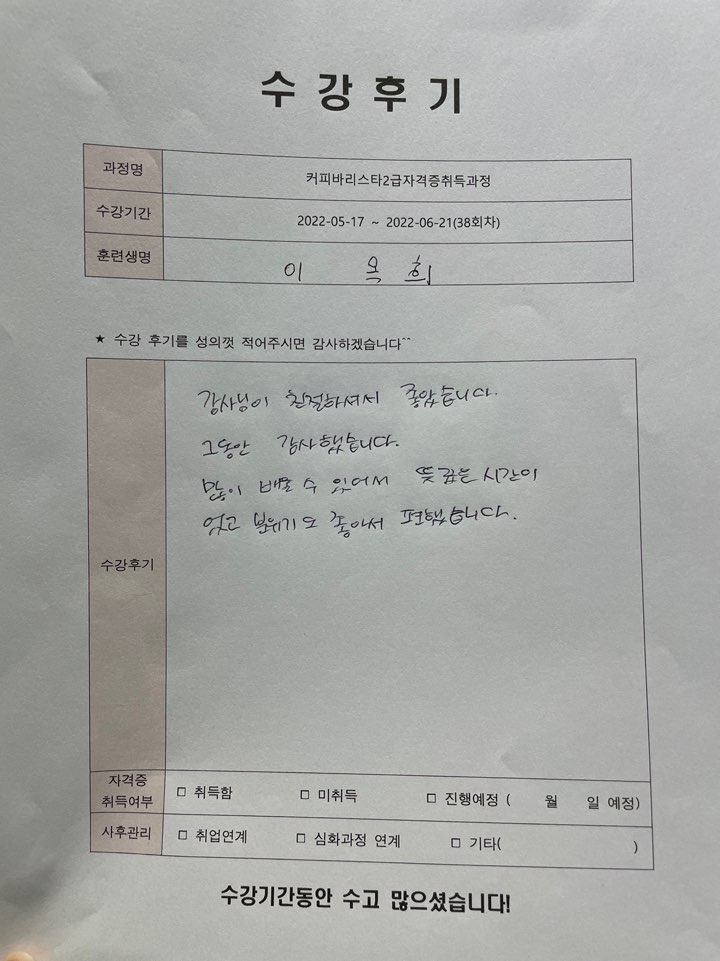 수강후기
과정명 커피바리스타2급자격증취득과정
수강기간 2022-05-17 ~ 2022-06-21(38회차)
훈련생명 이 옥 희
★ 수강 후기를 성의껏 적어주시면 감사하겠습니다^^
강사님이 친절하셔서 좋았습니다.
그동안 감사했습니다.
많이 배울 수 있어서 뜻 깊은 시간이
었고 분위기도 좋아서 편했습니다.
수강후기
자격증
취득여부 □ 취득함 □ 미취득 □ 진행예정 ( 월 일 예정)
사후관리 □ 취업연계 □ 심화과정 연계 □ 기타( )
수강기간동안 수고 많으셨습니다!